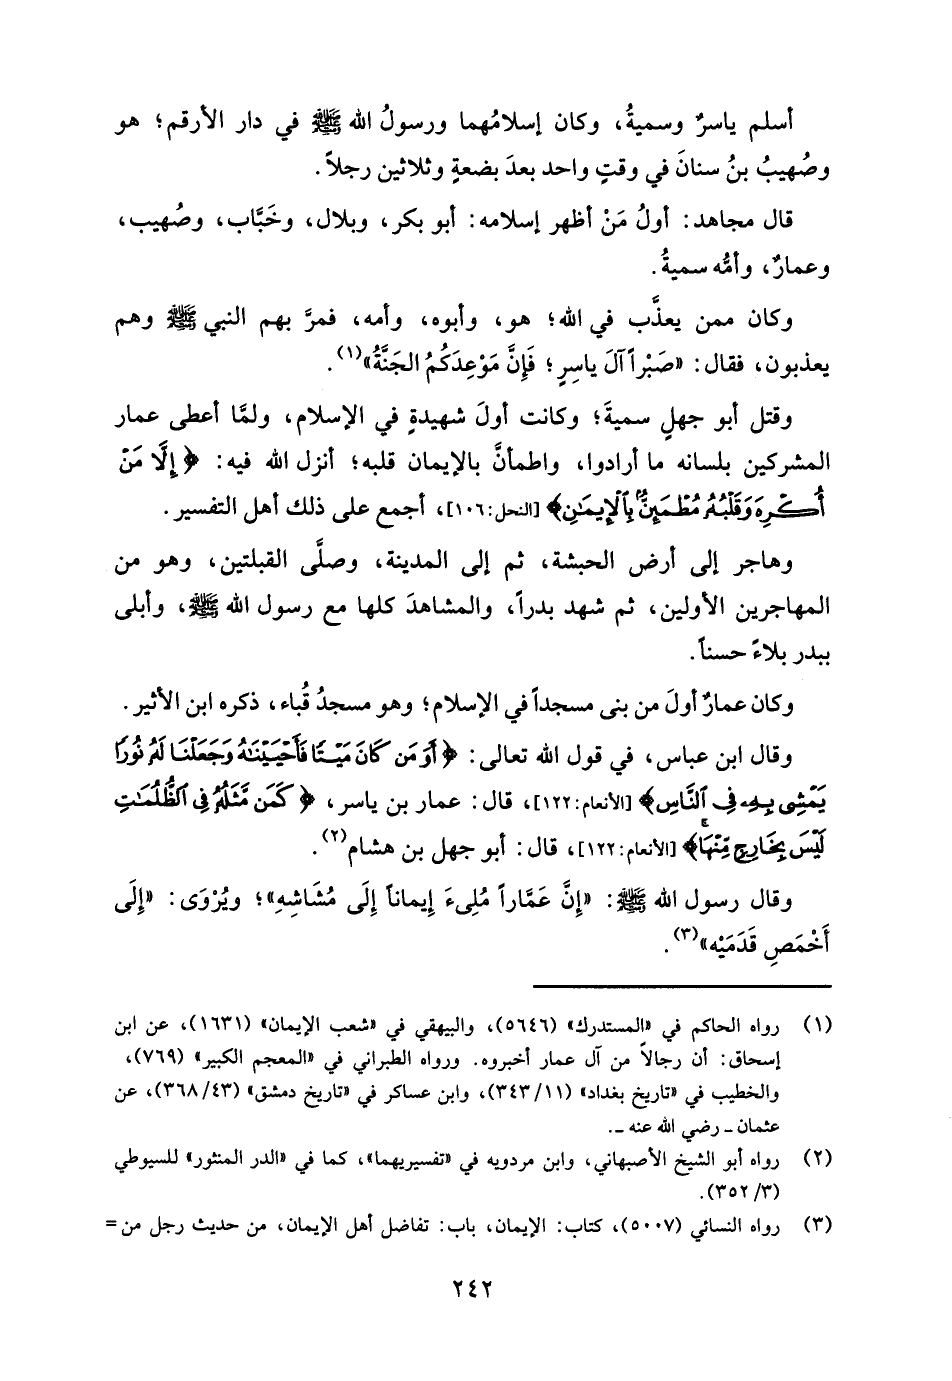 أسلم ياسرٌ وسميةُ، وكان إسلامُهما ورسولُ الله ﷺ في دار الأرقم؛ هو
وصُهيبُ بنُ سنانَ في وقتٍ واحد بعدَ بضعةٍ وثلاثين رجلاً.
قال مجاهد: أولُ مَنْ أظهر إسلامه: أبو بكر، وبلال، وخَبَّاب، وصُهيب،
وعمارٌ، وأمُّه سميةُ.
وكان ممن يعذَّب في الله؛ هو، وأبوه، وأمه، فمرَّ بهم النبي ﷺ وهم
يعذبون، فقال: «صَبْراً آلَ ياسِرٍ؛ فَإِنَّ مَوْعِدَكُمُ الجَنَّةُ»(١).
وقتل أبو جهلٍ سميةَ؛ وكانت أولَ شهيدةٍ في الإسلام، ولمَّا أعطى عمار
المشركين بلسانه ما أرادوا، واطمأنَّ بالإيمان قلبه؛ أنزل الله فيه: ﴿إِلَّا مَنْ
أُكْرِهَ وَقَلْبُهُۥ مُطْمَئِنٌّۢ بِٱلْإِيمَٰنِ﴾ [النحل: ١٠٦]، أجمع على ذلك أهل التفسير.
وهاجر إلى أرض الحبشة، ثم إلى المدينة، وصلَّى القبلتين، وهو من
المهاجرين الأولين، ثم شهد بدراً، والمشاهدَ كلها مع رسول الله ﷺ، وأبلى
ببدر بلاءً حسناً.
وكان عمارٌ أولَ من بنى مسجداً في الإسلام؛ وهو مسجدُ قُباء، ذكره ابن الأثير.
وقال ابن عباس، في قول الله تعالى: ﴿أَوَ مَن كَانَ مَيْتًا فَأَحْيَيْنَٰهُ وَجَعَلْنَا لَهُۥ نُورًا
يَمْشِى بِهِۦ فِى ٱلنَّاسِ﴾ [الأنعام: ١٢٢]، قال: عمار بن ياسر، ﴿كَمَن مَّثَلُهُۥ فِى ٱلظُّلُمَٰتِ
لَيْسَ بِخَارِجٍ مِّنْهَا﴾ [الأنعام: ١٢٢]، قال: أبو جهل بن هشام(٢).
وقال رسول الله ﷺ: «إِنَّ عَمَّاراً مُلِىءَ إِيماناً إِلَى مُشَاشِهِ»؛ ويُرْوَى: «إِلَى
أَخْمَصِ قَدَمَيْه»(٣).
(١) رواه الحاكم في «المستدرك» (٥٦٤٦)، والبيهقي في «شعب الإيمان» (١٦٣١)، عن ابن
إسحاق: أن رجالاً من آل عمار أخبروه. ورواه الطبراني في «المعجم الكبير» (٧٦٩)،
والخطيب في «تاريخ بغداد» (١١/ ٣٤٣)، وابن عساكر في «تاريخ دمشق» (٤٣/ ٣٦٨)، عن
عثمان ـ رضي الله عنه ـ.
(٢) رواه أبو الشيخ الأصبهاني، وابن مردويه في «تفسيريهما»، كما في «الدر المنثور» للسيوطي
(٣/ ٣٥٢).
(٣) رواه النسائي (٥٠٠٧)، كتاب: الإيمان، باب: تفاضل أهل الإيمان، من حديث رجل من =
٢٤٢